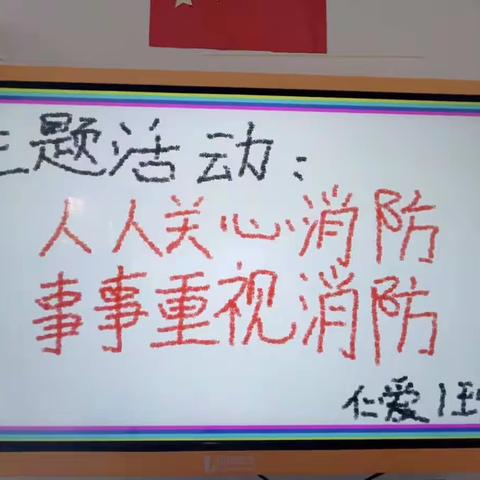 主题活动：
人人关心消防
事事重视消防
仁爱1班